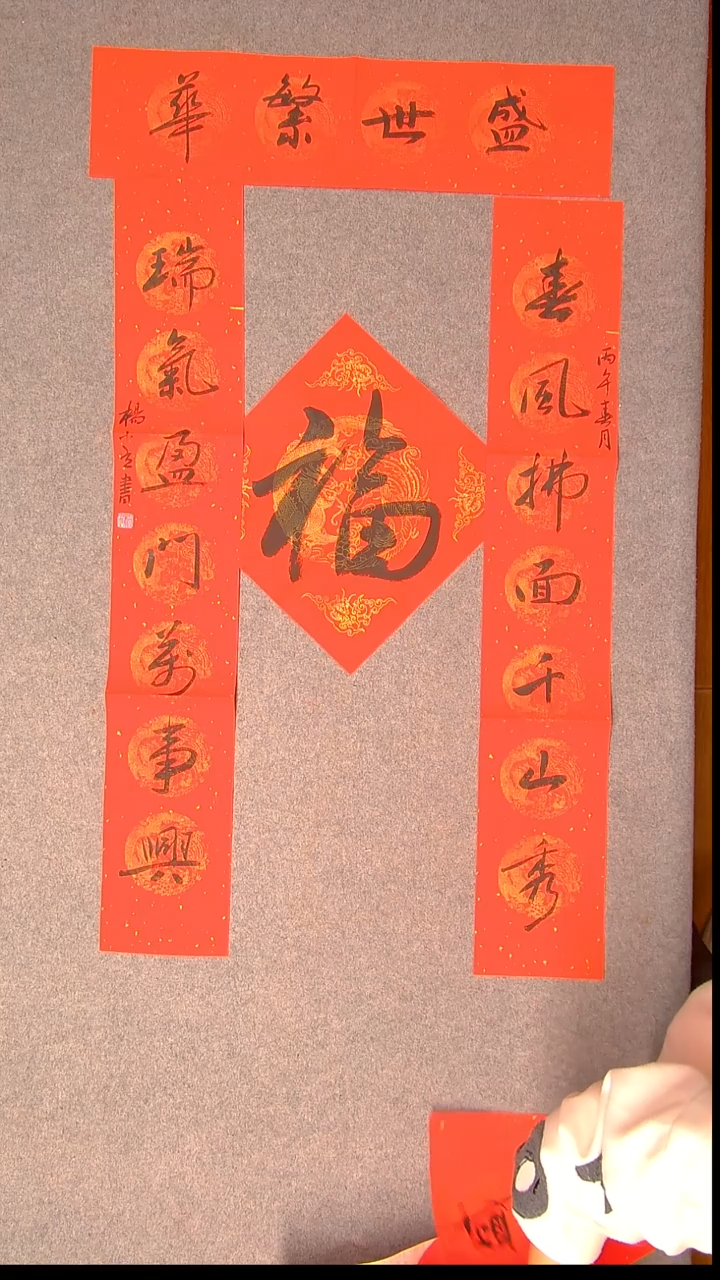 盛世繁華
春風拂面千山秀
丙午春月
福
瑞氣盈門萬事興
書